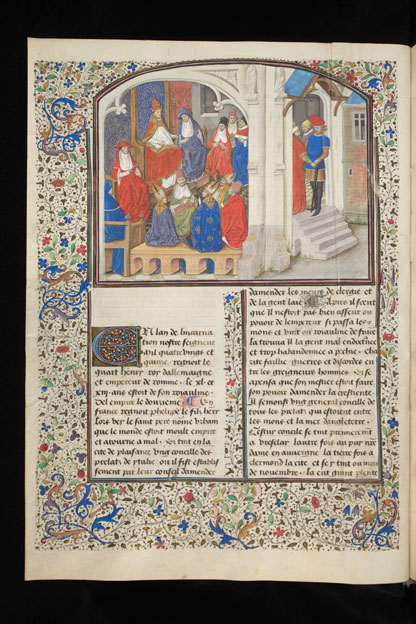 El lan de lincarna
tion nostre seigneur
mil quatrevingts et
quinze regnoit le
quart henry roy dallemaigne
et empereur de romme le xl et
iij ans estoit de son royaulme
Del empire le douzieme En
france regnoit phelipe le filz henry
lors ber le saint pere nomé
que le monde estoit moult empire
et atourne a mal. tint en la
cite de plaisance ung concille des
prelats de ytalie ou il fist establis
sement par leur conseil damender
damender les meurs de clergie et
de la gent laie Apres il sent
que il nestoit pas bien asseur ou
pouoir de lempereur si passa les
mons et vint ou royaulme de france
la trouva il la gent mal endoctrinee
et trop habandonnee a pechie cha
rite faillie guerres et discordes en
tre les greigneurs hommes Si se
apensa que son mestier estoit faire
son pouoir damender la crestiente
Il semonst ung general concille de
tous les prelats qui estoient entre
les mons et la mer dangleterre
Cestui concile fu tint premierement
a lautre fois au pui nostre
dame en auvergne la tierce fois a
clermond la cite et se y tint ou mois
de novembre la eut grant plente